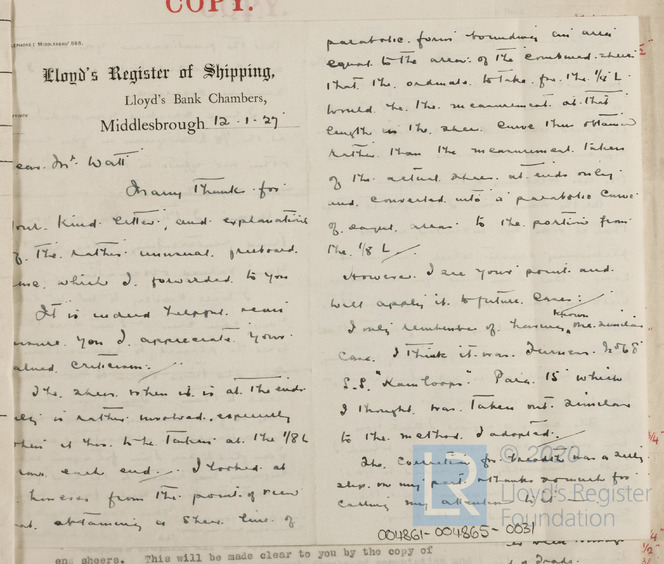 COPY.
TELEPHONE: MIDDLESBRO' 568.
Lloyd's Register of Shipping,
Lloyd's Bank Chambers,
Middlesbrough 12.1.27
ear Mr Watt
Many Thanks for
your kind letter, and explanations
of the rather unusual freeboard
which I forwarded to you
It is indeed helpful
you I appreciate your
valued criticism:
The sheer when it is at the ends
only is rather involved, especially
when it has to be taken at the 1/8 L
from each end. I looked at
however from the point of view
obtaining a sheer line of
parabolic form bounding an area
equal to the area of the combined sheer
that the ordinate to take for the 1/8 L
would be the measurement at that
length in the sheer curve thus obtained
rather than the measurement taken
of the actual sheer at ends only
and converted into a parabolic curve
of equal area to the portion from
the 1/8 L
However I see your point and
will apply it to future cases:
I only remember of having known one similar
case. I think it was Furness No 68
S.S. "Kamloops" Para 15 which
I thought was taken out similar
to the method I adopted.
The correction for breadth was a silly
slip on my part & thanks so much for
calling my attention to it
© 2020
LR
Lloyd's Register
Foundation
004861-004865-0031
en sheers. This will be made clear to you by the copy of